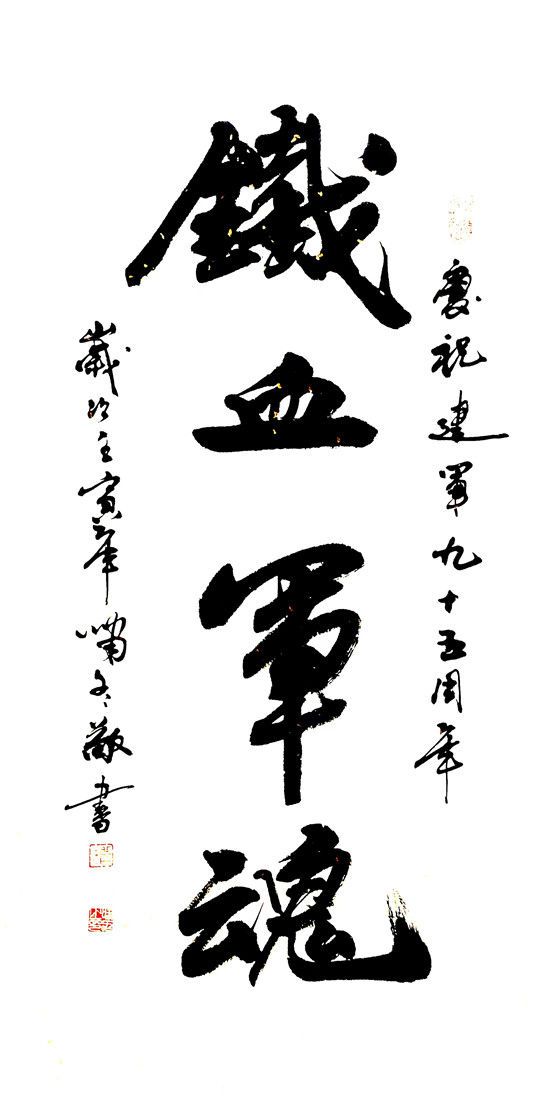 慶祝建軍九十五周年
鐵血軍魂
歲次壬寅年嘯冬敬書